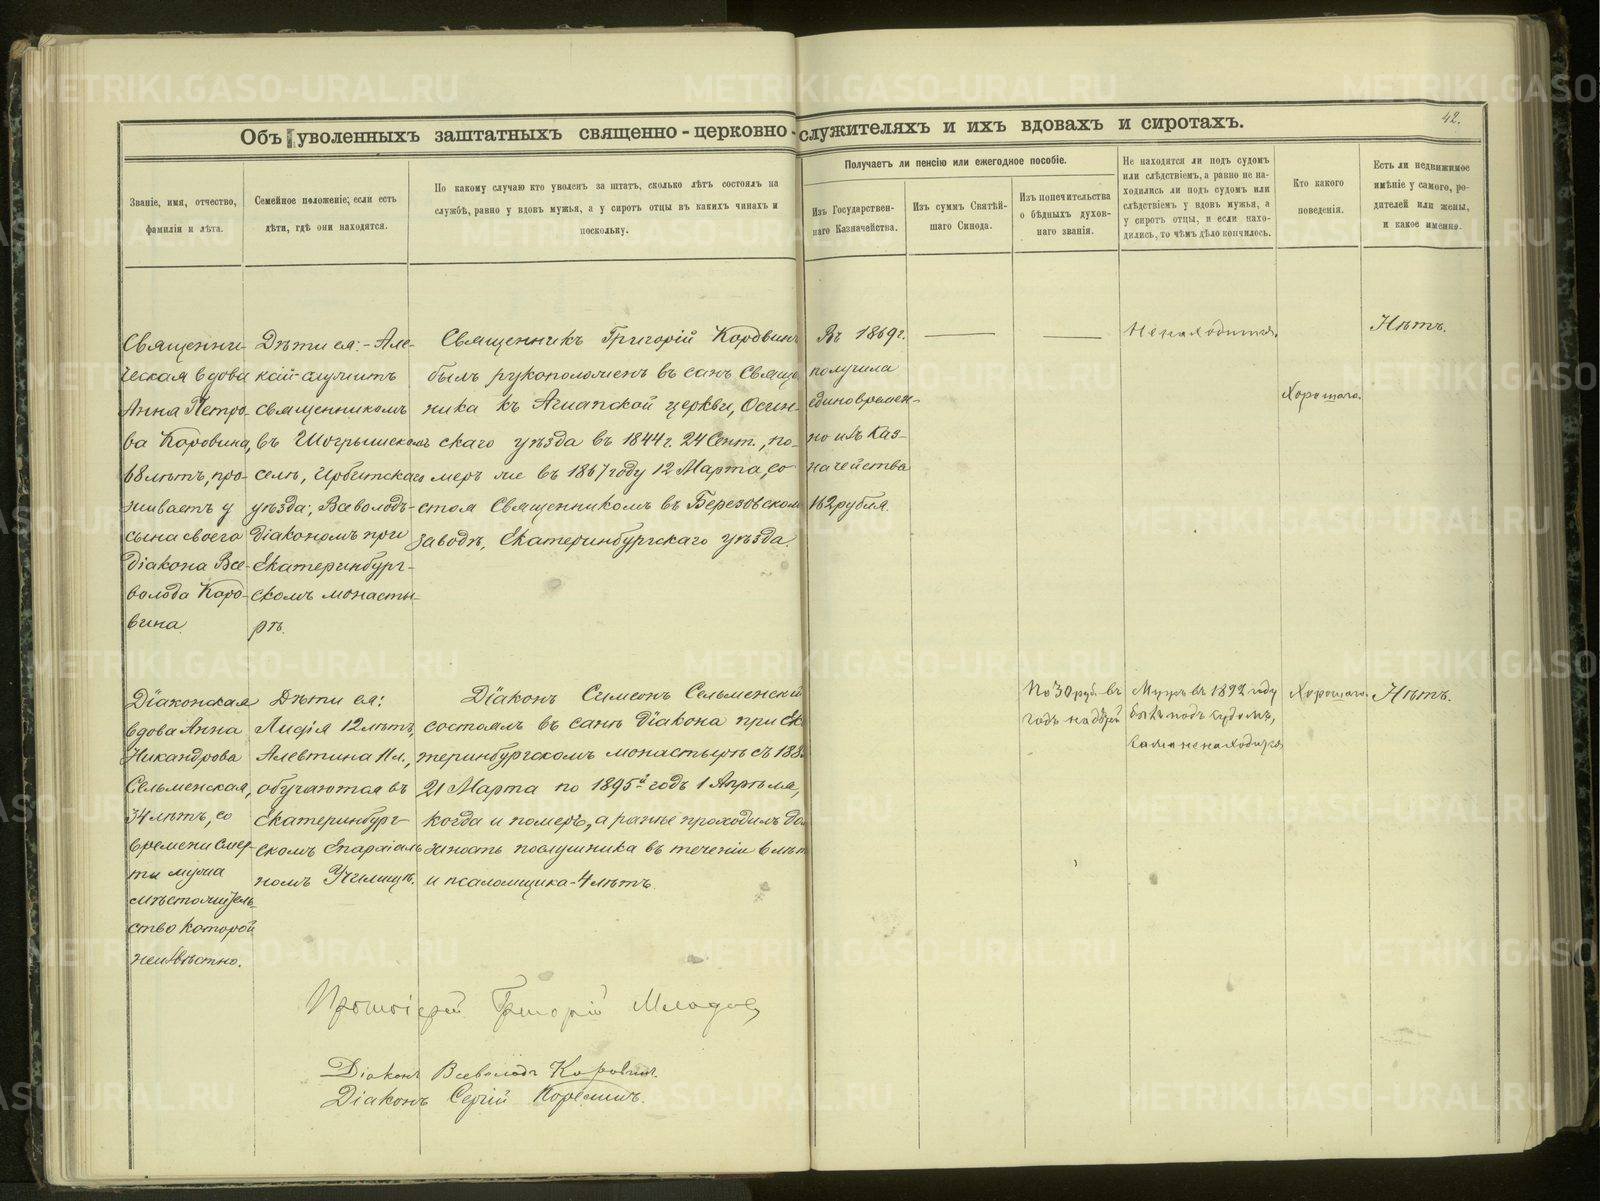 42.
Объ уволенныхъ заштатныхъ священно-церковно-служителяхъ и ихъ вдовахъ и сиротахъ.
Званіе, имя, отчество,
фамилія и лѣта.
Семейное положеніе; если есть
дѣти, гдѣ они находятся.
По какому случаю кто уволенъ за штатъ, сколько лѣтъ состоялъ на
службѣ, равно у вдовъ мужья, а у сиротъ отцы въ какихъ чинахъ и
поскольку.
Получаетъ ли пенсію или ежегодное пособіе.
Изъ Государствен-
наго Казначейства.
Изъ суммъ Святѣй-
шаго Синода.
Изъ попечительства
о бѣдныхъ духов-
наго званія.
Не находятся ли подъ судомъ
или слѣдствіемъ, а равно не на-
ходились ли подъ судомъ или
слѣдствіемъ у вдовъ мужья, а
у сиротъ отцы, и если нахо-
дились, то чѣмъ дѣло кончилось.
Кто какого
поведенія.
Есть ли недвижимое
имѣніе у самого, ро-
дителей или жены,
и какое именно.
Священни-
ческая вдова
Анна Петро-
ва Коровина,
68 лѣтъ, про-
живаетъ у
сына своего
діакона Все-
волода Коро-
вина.
Дѣти ея:
служитъ
священникомъ
въ Шогрышскомъ
селѣ, Ирбитскаго
уѣзда; Всеволодъ-
діакономъ при
Екатеринбург-
скомъ монасты-
рѣ.
Священникъ Григорій Коровинъ
былъ рукоположенъ въ санъ Свяще
ника къ церкви, Осин-
скаго уѣзда въ 1844 г. 24 Сент., по-
меръ же въ 1867 году 12 Марта, со
стоя Священникомъ въ Березовскомъ
заводѣ, Екатеринбургскаго уѣзда.
Въ 1869 г.
получила
единовремен-
но изъ Каз-
начейства
162 рубля.
Не находится.
Хорошаго.
Нѣтъ.
Діаконская
вдова Анна
Никандрова
Сельменская,
34 лѣтъ, со
времени смер-
ти мужа
мѣстожитель-
ство которой
неизвѣстно.
Дѣти ея:
Лидія 12 лѣтъ,
Алевтина 11 л.,
обучаются въ
Екатеринбург-
скомъ Епархіаль
номъ Училищѣ.
Діаконъ Симеонъ Сельменскій
состоялъ въ санѣ Діакона при Ека
теринбургскомъ монастырѣ съ 188
21 Марта по 1895й годъ 1 Апрѣля,
когда и померъ, а ранѣе проходилъ дол
жность послушника въ теченіи 6 лѣтъ
и псаломщика - 4 лѣтъ.
По 30 руб. въ
годъ на дѣтей
Мужъ въ 1892 году
былъ подъ судомъ,
сама не находится
Хорошаго.
Нѣтъ.
Протоіерей Григорій
Діаконъ Всеволодъ Коровинъ.
Діаконъ Сергій
METRIKI.GASO-URAL.RU